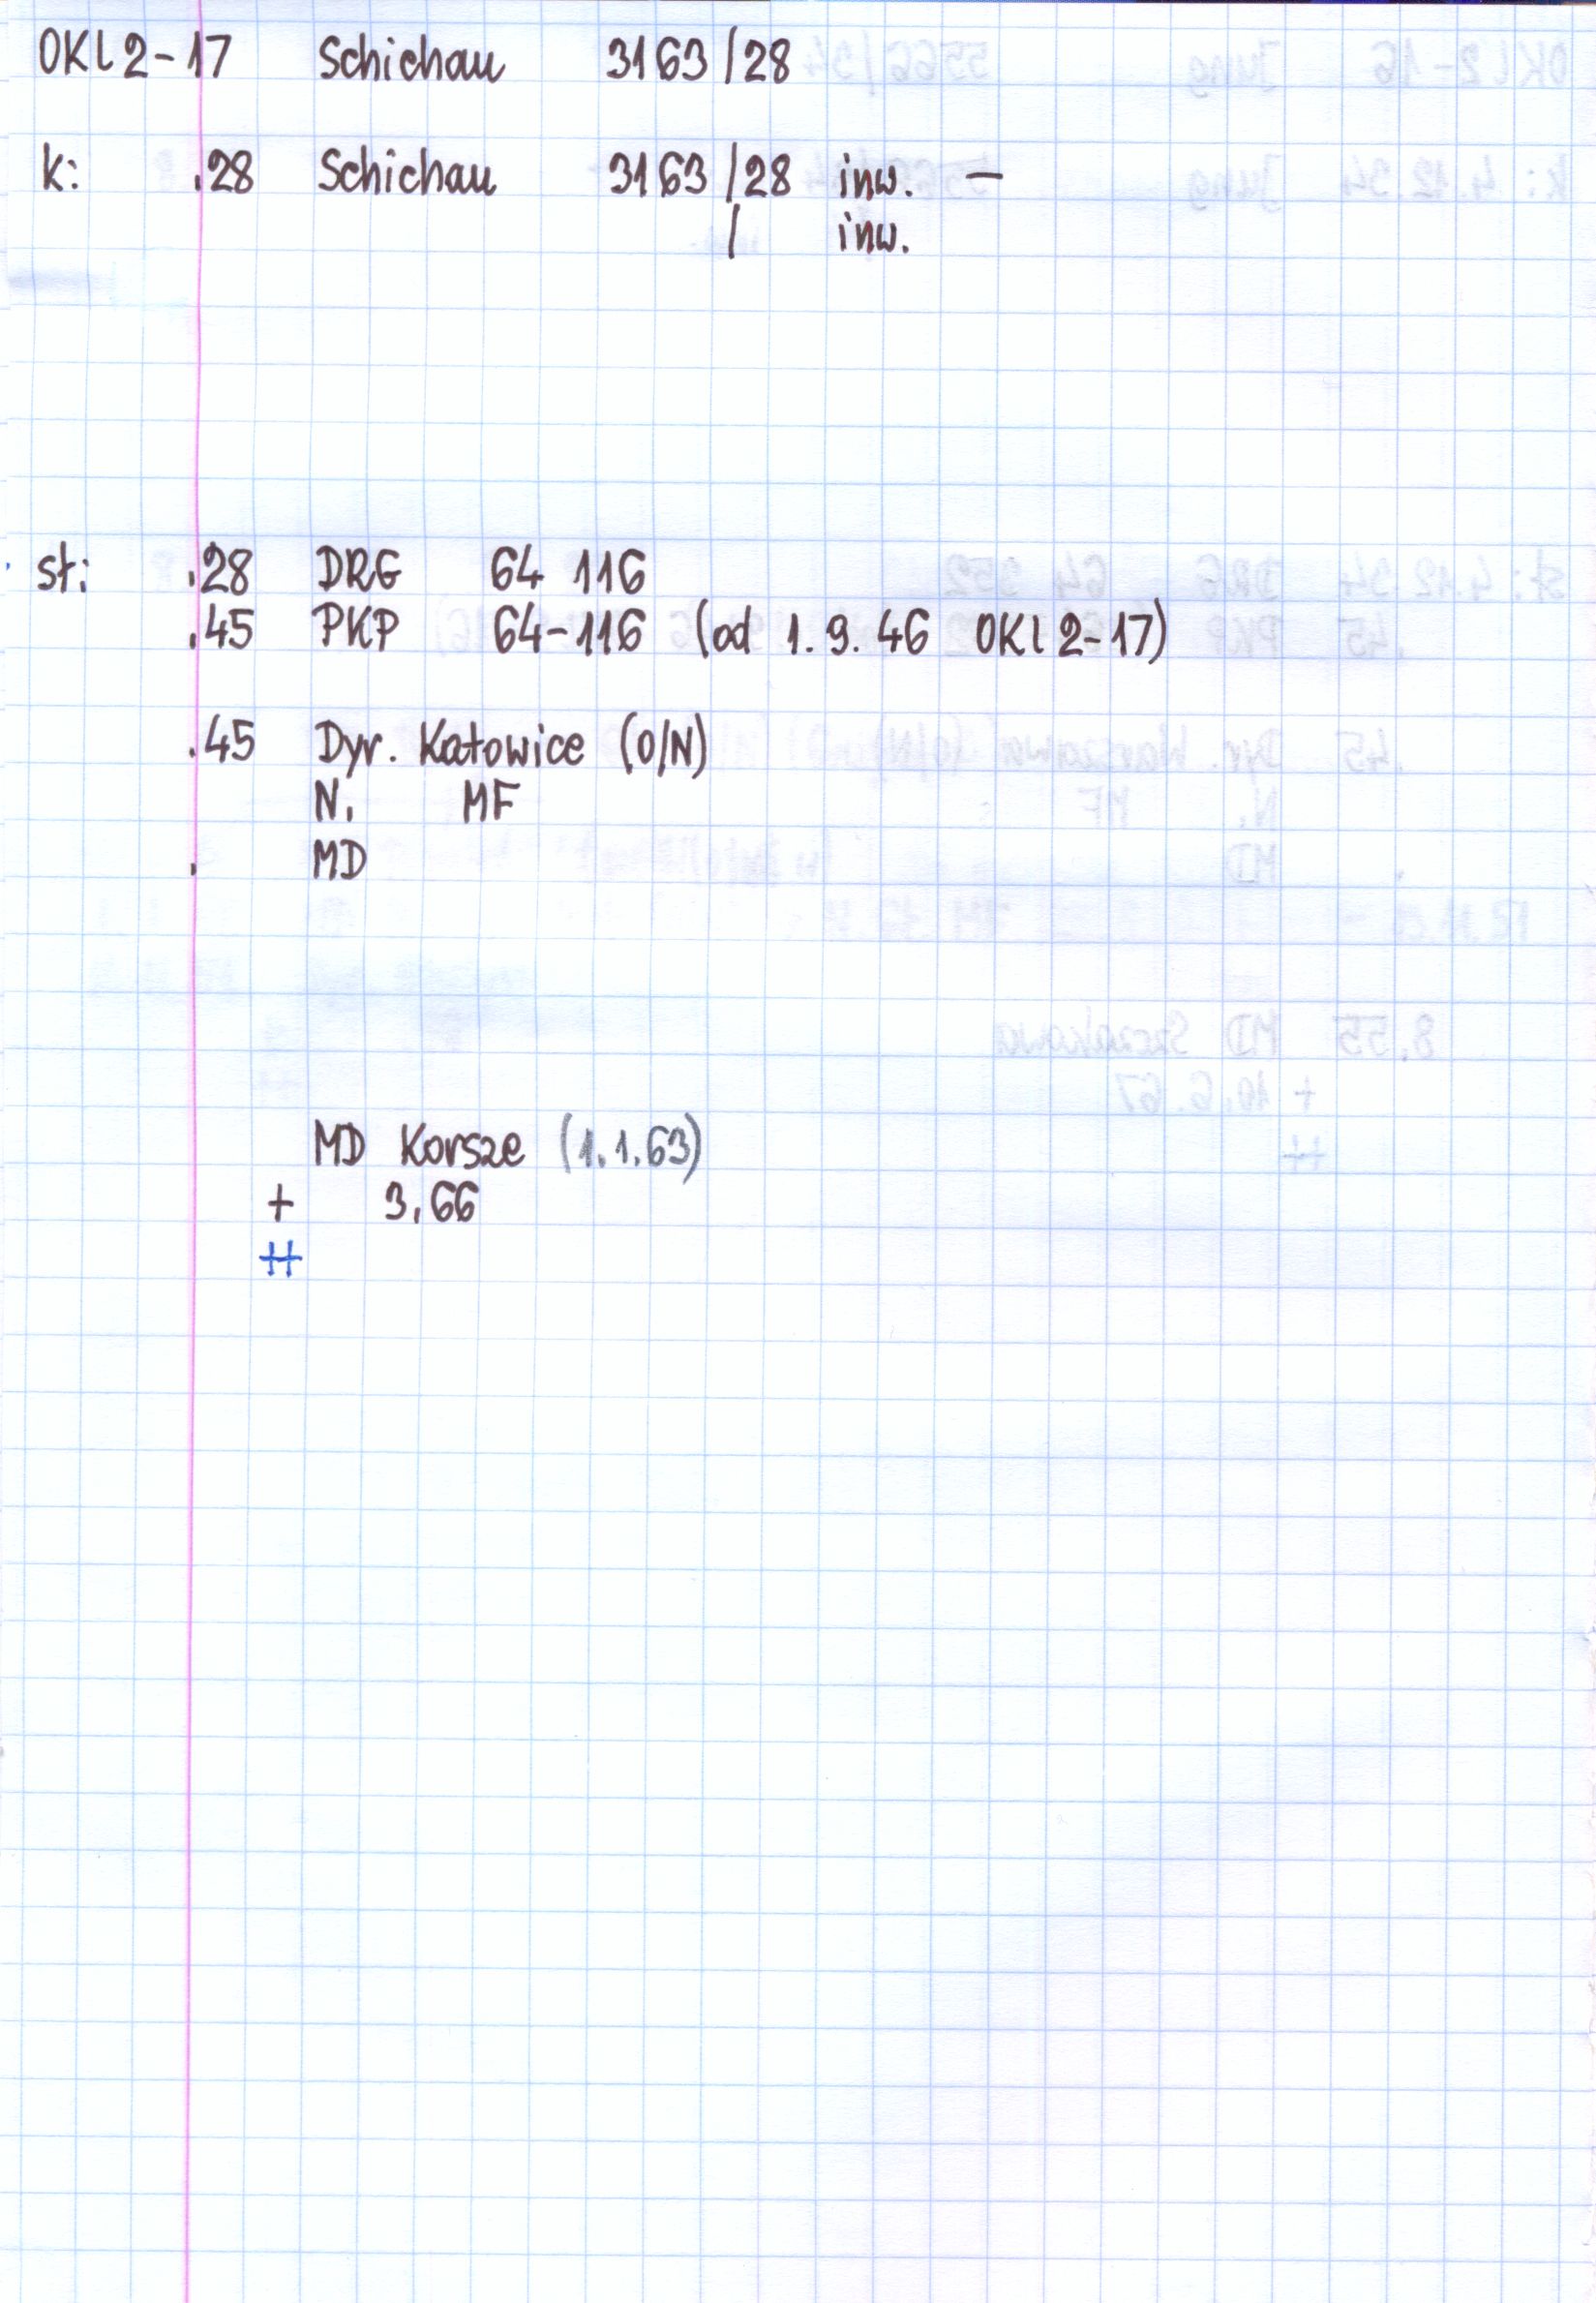 OKl2-17 Schichau 3163/28
k: .28 Schichau 3163/28 inw. —
/ inw.
st: .28 DRG 64 116
.45 PKP 64-116 (od 1.9.46 OKl2-17)
.45 Dyr. Katowice (O/N)
N. MF
. MD
MD Korsze (1.1.63)
+ 3.66
++